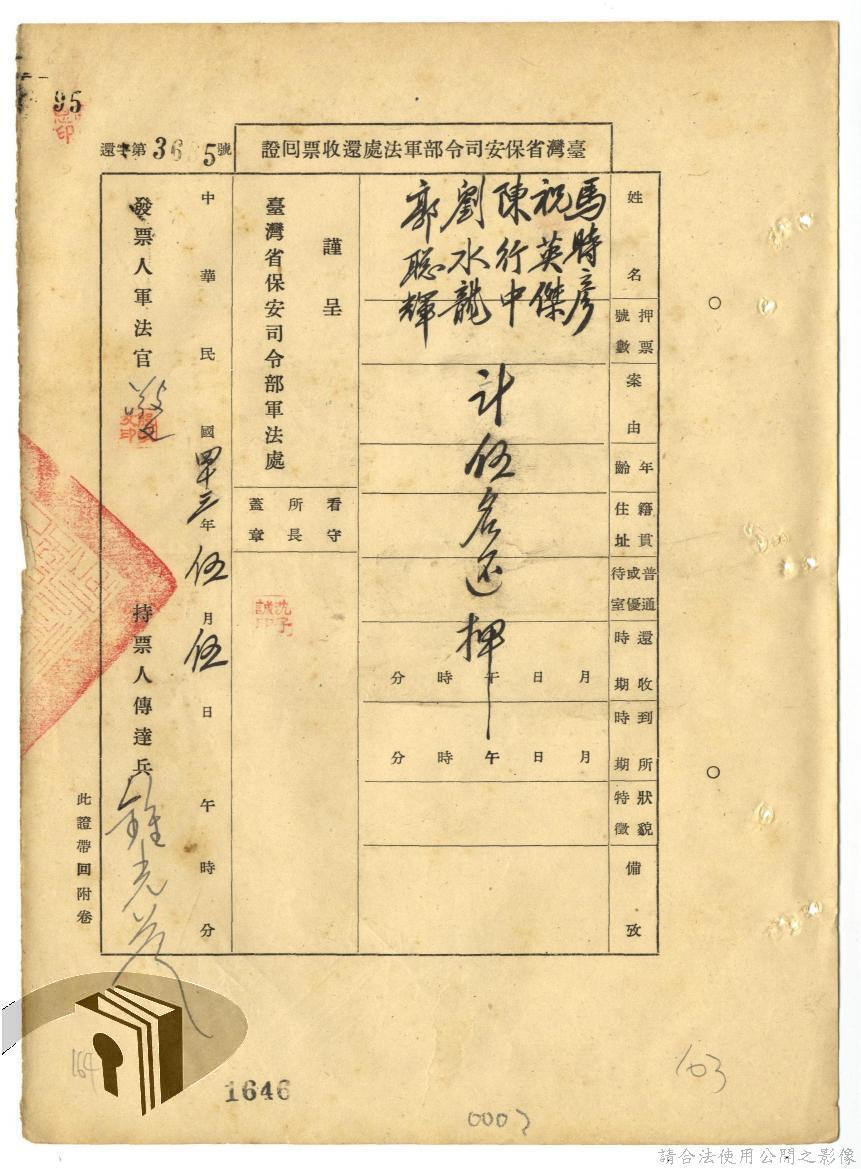 95
臺灣省保安司令部軍法處還收票回證
還字第36 5號
姓名
馬時彥
祝英傑
陳行中
劉水龍
郭聰輝
押票號數
案由
計伍名還押
年齡
籍貫住址
普通或優待室
還收時期
月 日 午 時 分
到所時期
月 日 午 時 分
狀貌特徵
備攷
謹呈
臺灣省保安司令部軍法處
看守所長蓋章
中華民國四十三年伍月伍日 午 時 分
發票人軍法官
持票人傳達兵
此證帶回附卷
164
1646
0007
103
請合法使用公開之影像